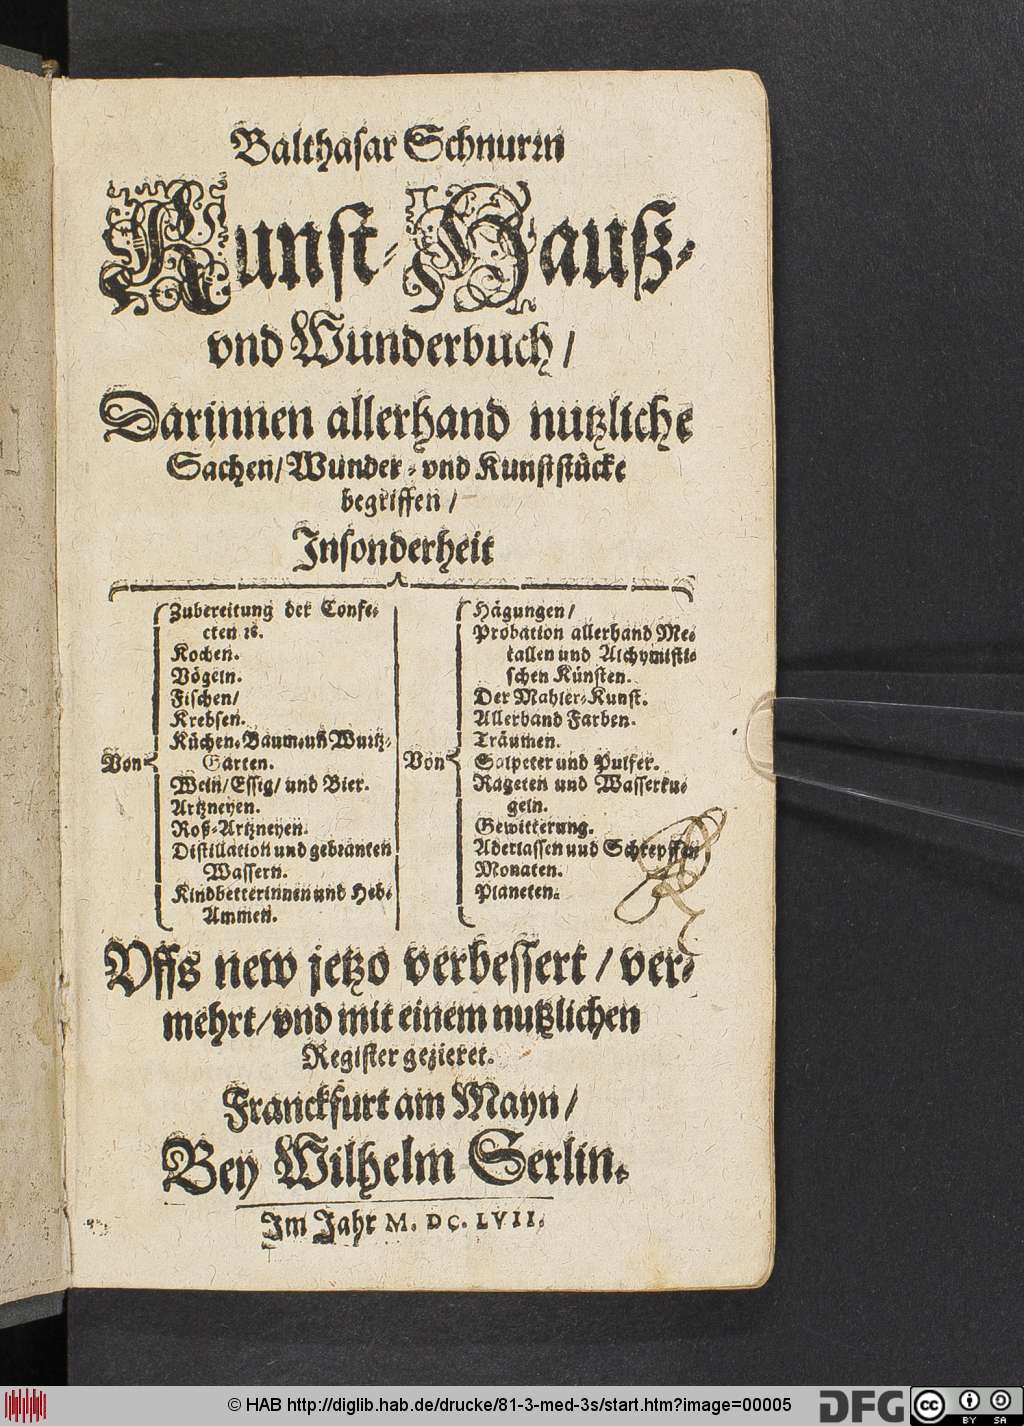 Balthasar Schnurrn
Kunst- Hauß-
vnd Wunderbuch/
Darinnen allerhand nutzliche
Sachen/ Wunder- vnd Kunststücke
begriffen/
Insonderheit
Von
Zubereitung der Confe-
cten ꝛc.
Kochen.
Vögeln.
Fischen/
Krebsen.
Küchen- Baum- uñ Wurtz-
Garten.
Wein/ Essig/ und Bier.
Artzneyen.
Roß-Artzneyen.
Distillation und gebranten
Wassern.
Kindbetterinnen und Heb-
Ammen.
Von
Hägungen/
Probation allerhand Me-
tallen und Alchymisti-
schen Künsten.
Der Mahler-Kunst.
Allerhand Farben.
Träumen.
Salpeter und Pulfer.
Rageten und Wasserku-
geln.
Gewitterung.
Aderlassen uud Schrepffen
Monaten.
Planeten.
Vffs new jetzo verbessert/ ver-
mehrt/ vnd mit einem nutzlichen
Register gezieret.
Franckfurt am Mayn/
Bey Wilhelm Serlin.
Im Jahr M. DC. LVII.
© HAB http://diglib.hab.de/drucke/81-3-med-3s/start.htm?image=00005
DFG
cc BY SA